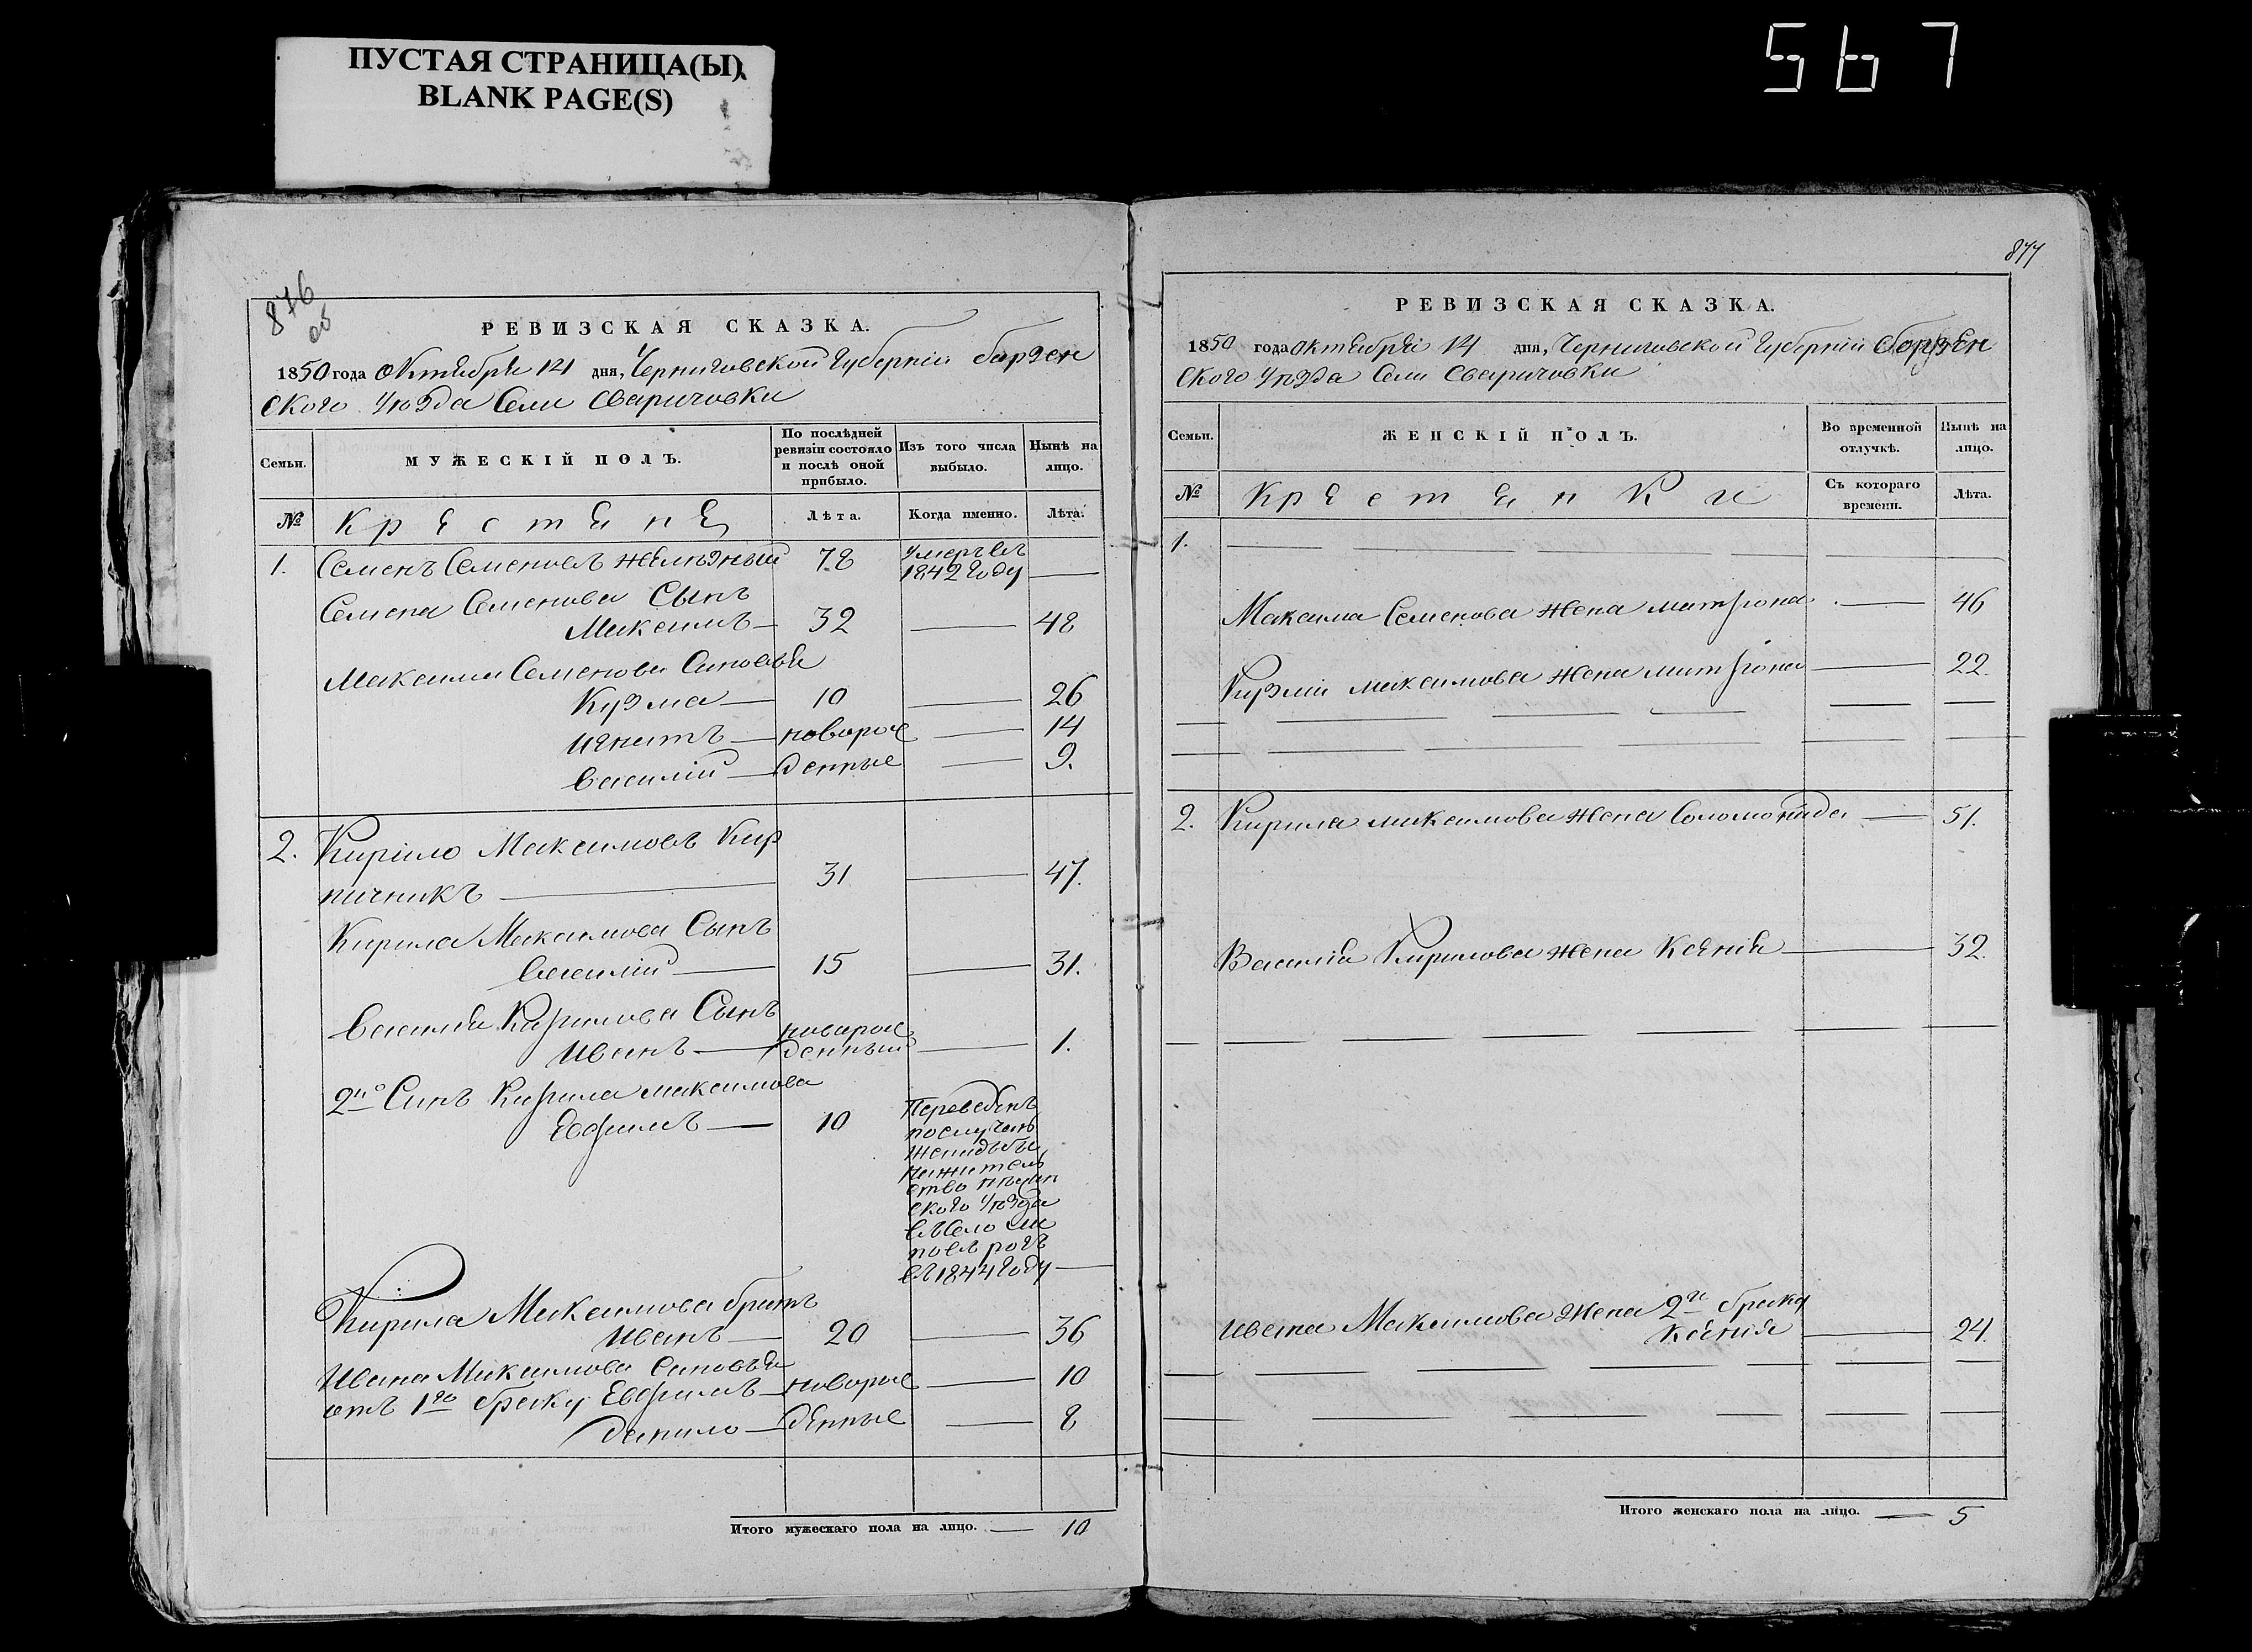 ПУСТАЯ СТРАНИЦА(Ы)
BLANK PAGE(S)
567
876
об
РЕВИЗСКАЯ СКАЗКА.
1850 года октября 14 дня, Черниговской Губерніи борзен
ского уѣзда Села Сваричовки
Семьи.
МУЖЕСКІЙ ПОЛЪ.
По послѣдней ревизіи состояло и послѣ оной прибыло.
Изъ того числа выбыло.
Нынѣ на лицо.
№
Крестяне
Лѣта.
Когда именно.
Лѣта.
1. Семенъ Семеновъ Желѣзный 78 умеръ въ 1842 году —
Семена Семенова Сынъ
Максимъ — 32 — 48
Максима Семенова Синовья
Кузма — 10 — 26
Игнатъ — новорож — 14
Василій — денные — 9.
2. Кирило Максимовъ Кир
пичникъ — 31 — 47.
Кирила Максимова Сынъ
Василій — 15 — 31.
Василія Кирилова Сынъ
Иванъ — новорож денный — 1.
2й Синъ Кирила Максимова
Евфимъ — 10
Переведенъ
по случаю
женидьбы
на житель
ство нѣжин
ского уѣзда
въ Село
въ 1844 году —
Кирила Максимова братъ
Иванъ — 20 — 36
Ивана Максимова Синовья
отъ 1го браку Евфимъ — новорож — 10
Данило — денные — 8
Итого мужескаго пола на лицо. — 10
877
РЕВИЗСКАЯ СКАЗКА.
1850 года октября 14 дня, Черниговской Губерніи борзен
ского уѣзда Села Сваричовки
Семьи.
ЖЕНСКІЙ ПОЛЪ.
Во временной отлучкѣ.
Нынѣ на лицо.
№
Крестянки
Съ котораго времени.
Лѣта.
1.
Максима Семенова жена Матрона — 46
Кузмы Максимова жена Матрона — 22.
2. Кирила Максимова жена Соломонида — 51.
Василія Кирилова жена Ксенія — 32.
Ивана Максимова Жена 2го браку
Ксенія — 24.
Итого женскаго пола на лицо. — 5